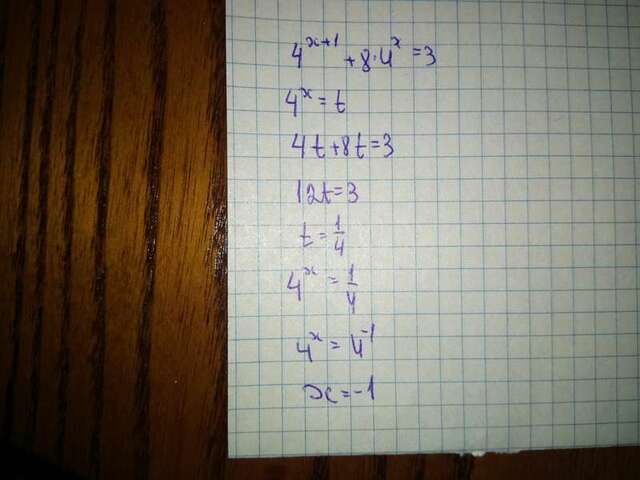 4^{x+1} + 8·4^x = 3
4^x = t
4t+8t=3
12t=3
t = 1/4
4^x = 1/4
4^x = 4^{-1}
x = -1